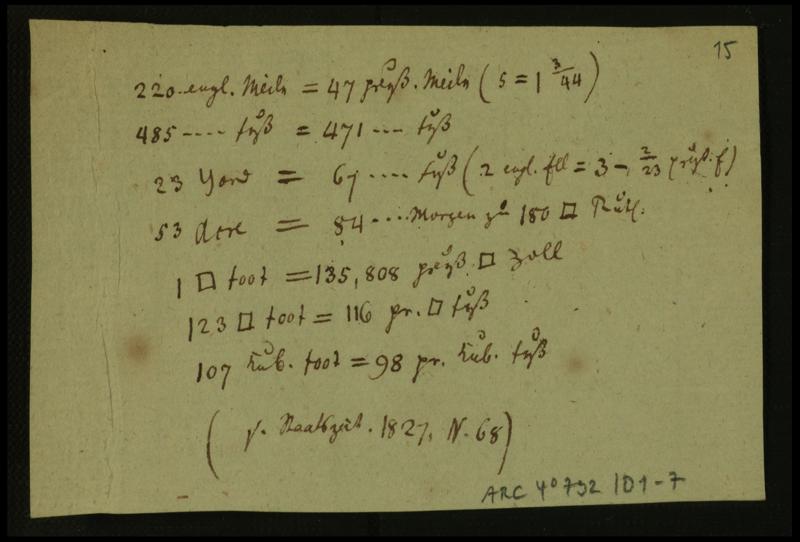 15
220 engl. Meiln = 47 preuß. Meiln ( 5 = 1 3/44 )
485 ---- Fuß = 471 --- Fuß
23 Yard = 67 ---- Fuß ( 2 engl. Ell = 3 - 2/23 preuß. F )
53 Acre = 84 --- Morgen zu 180 □ Ruth.
1 □ foot = 135,808 preuß. □ Zoll
123 □ foot = 116 pr. □ Fuß
107 Kub. foot = 98 pr. Kub. Fuß
( v. Staatszeit. 1827, N. 68 )
ARC 4° 792 / D1-7